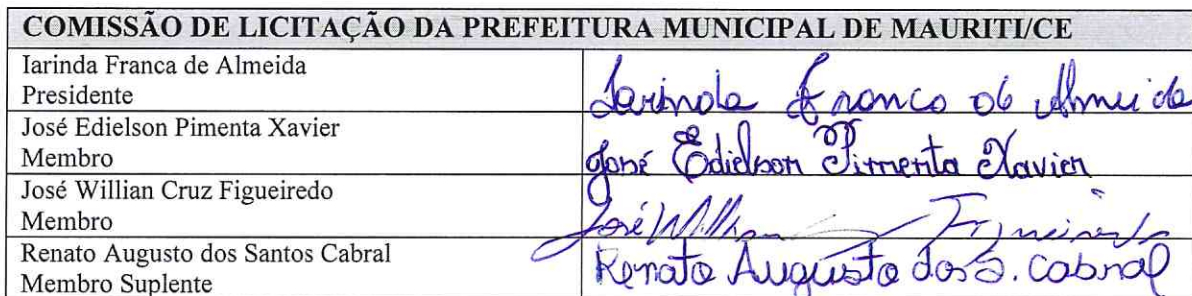 COMISSÃO DE LICITAÇÃO DA PREFEITURA MUNICIPAL DE MAURITI/CE
Iarinda Franca de Almeida
Presidente
Iarinda Franca de Almeida
José Edielson Pimenta Xavier
Membro
José Edielson Pimenta Xavier
José Willian Cruz Figueiredo
Membro
José Willian Figueiredo
Renato Augusto dos Santos Cabral
Membro Suplente
Renato Augusto dos S. Cabral